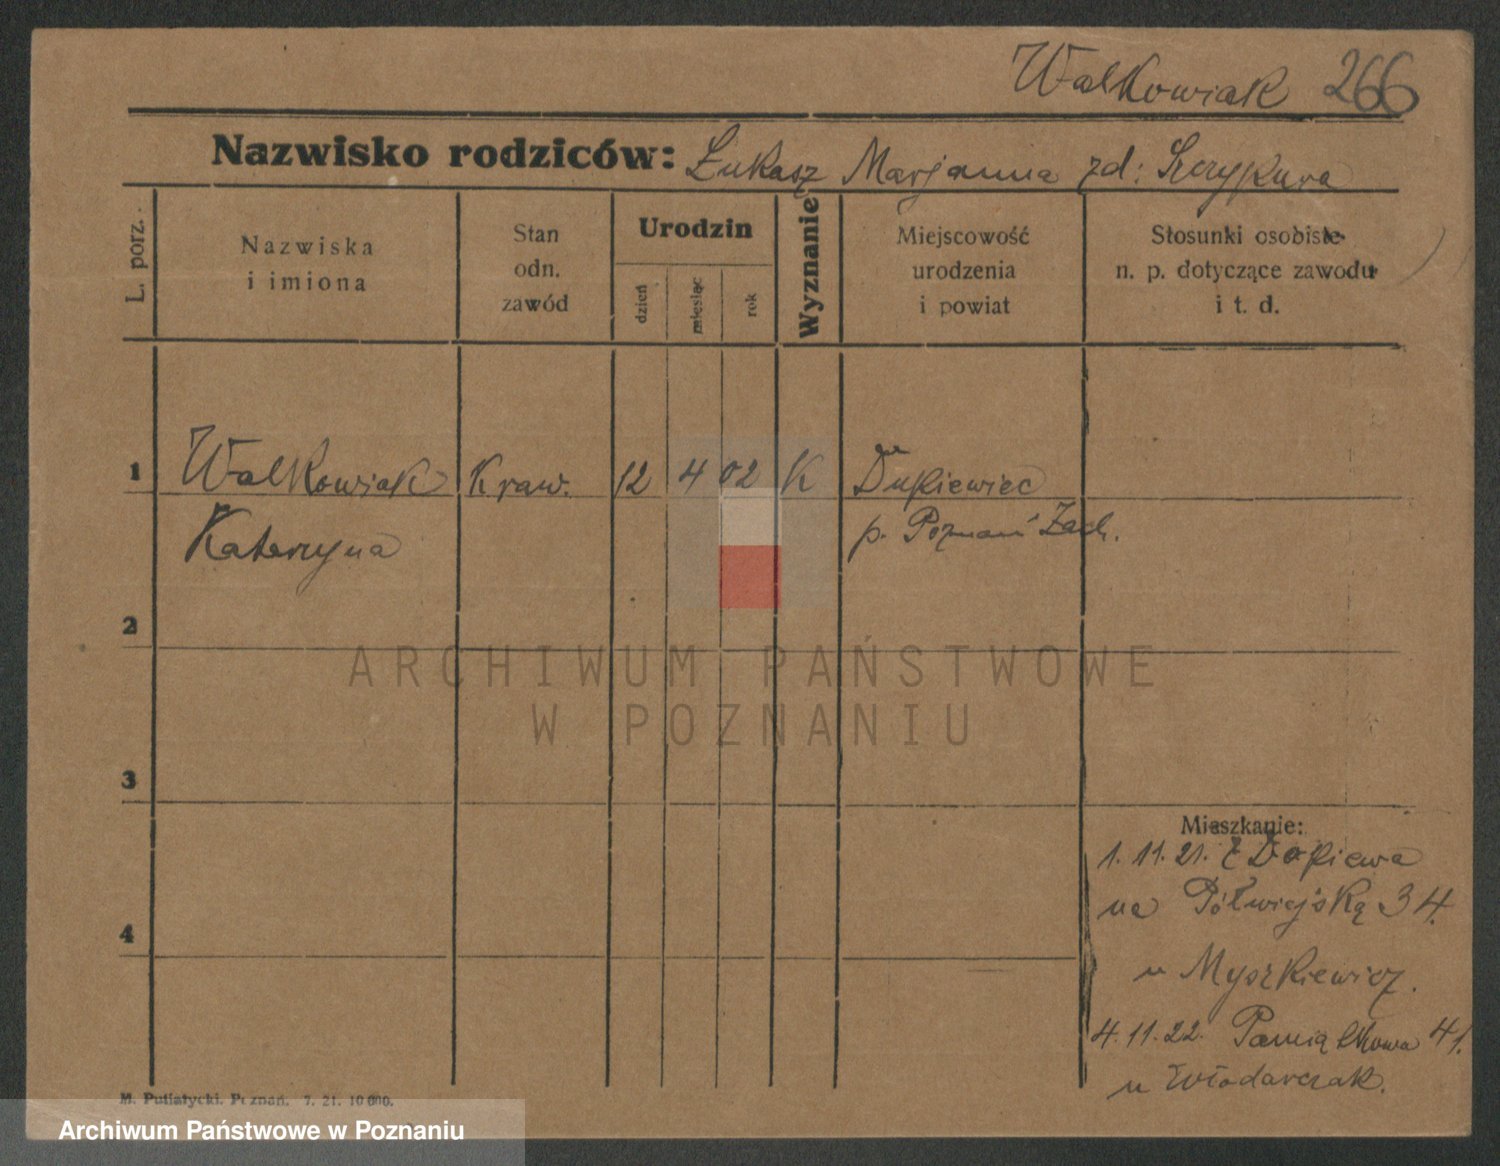 Walkowiak 266
Nazwisko rodziców: Łukasz Marjanna zd: Szczypura
L. porz.
Nazwiska
i imiona
Stan
odn.
zawód
Urodzin
dzień
miesiąc
rok
Wyznanie
Miejscowość
urodzenia
i powiat
Stosunki osobiste
n. p. dotyczące zawodu
i t. d.
1 Walkowiak Kraw. 12 4 02 K
Katarzyna p. Poznań Zach.
2
3
4
Mieszkanie:
1. 11. 21. z Dopiewa
na Półwiejską 34.
u Myszkiewicz.
4. 11. 22. Pamiątkowa 41.
u Włodarczak.
M. Putiatycki, Poznań. 7. 21. 10 000.
ARCHIWUM PAŃSTWOWE
W POZNANIU
Archiwum Państwowe w Poznaniu